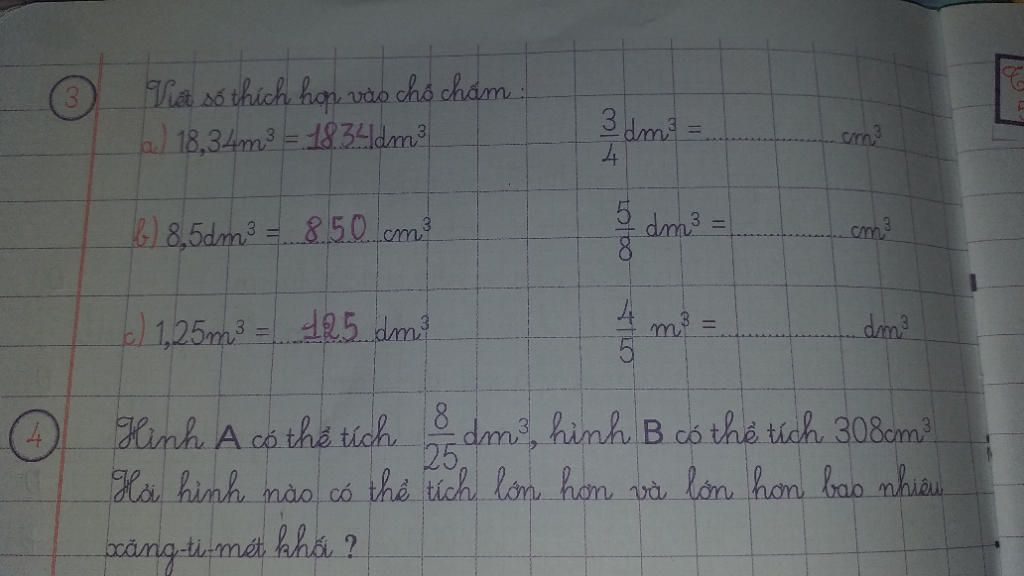 3 Viết số thích hợp vào chỗ chấm:
a) 18,34m³ = 1834 dm³ 3/4 dm³ = ............... cm³
b) 8,5dm³ = 850 cm³ 5/8 dm³ = ............... cm³
c) 1,25m³ = 125 dm³ 4/5 m³ = ............... dm³
4 Hình A có thể tích 8/25 dm³, hình B có thể tích 308cm³
Hỏi hình nào có thể tích lớn hơn và lớn hơn bao nhiêu
xăng-ti-mét khối ?